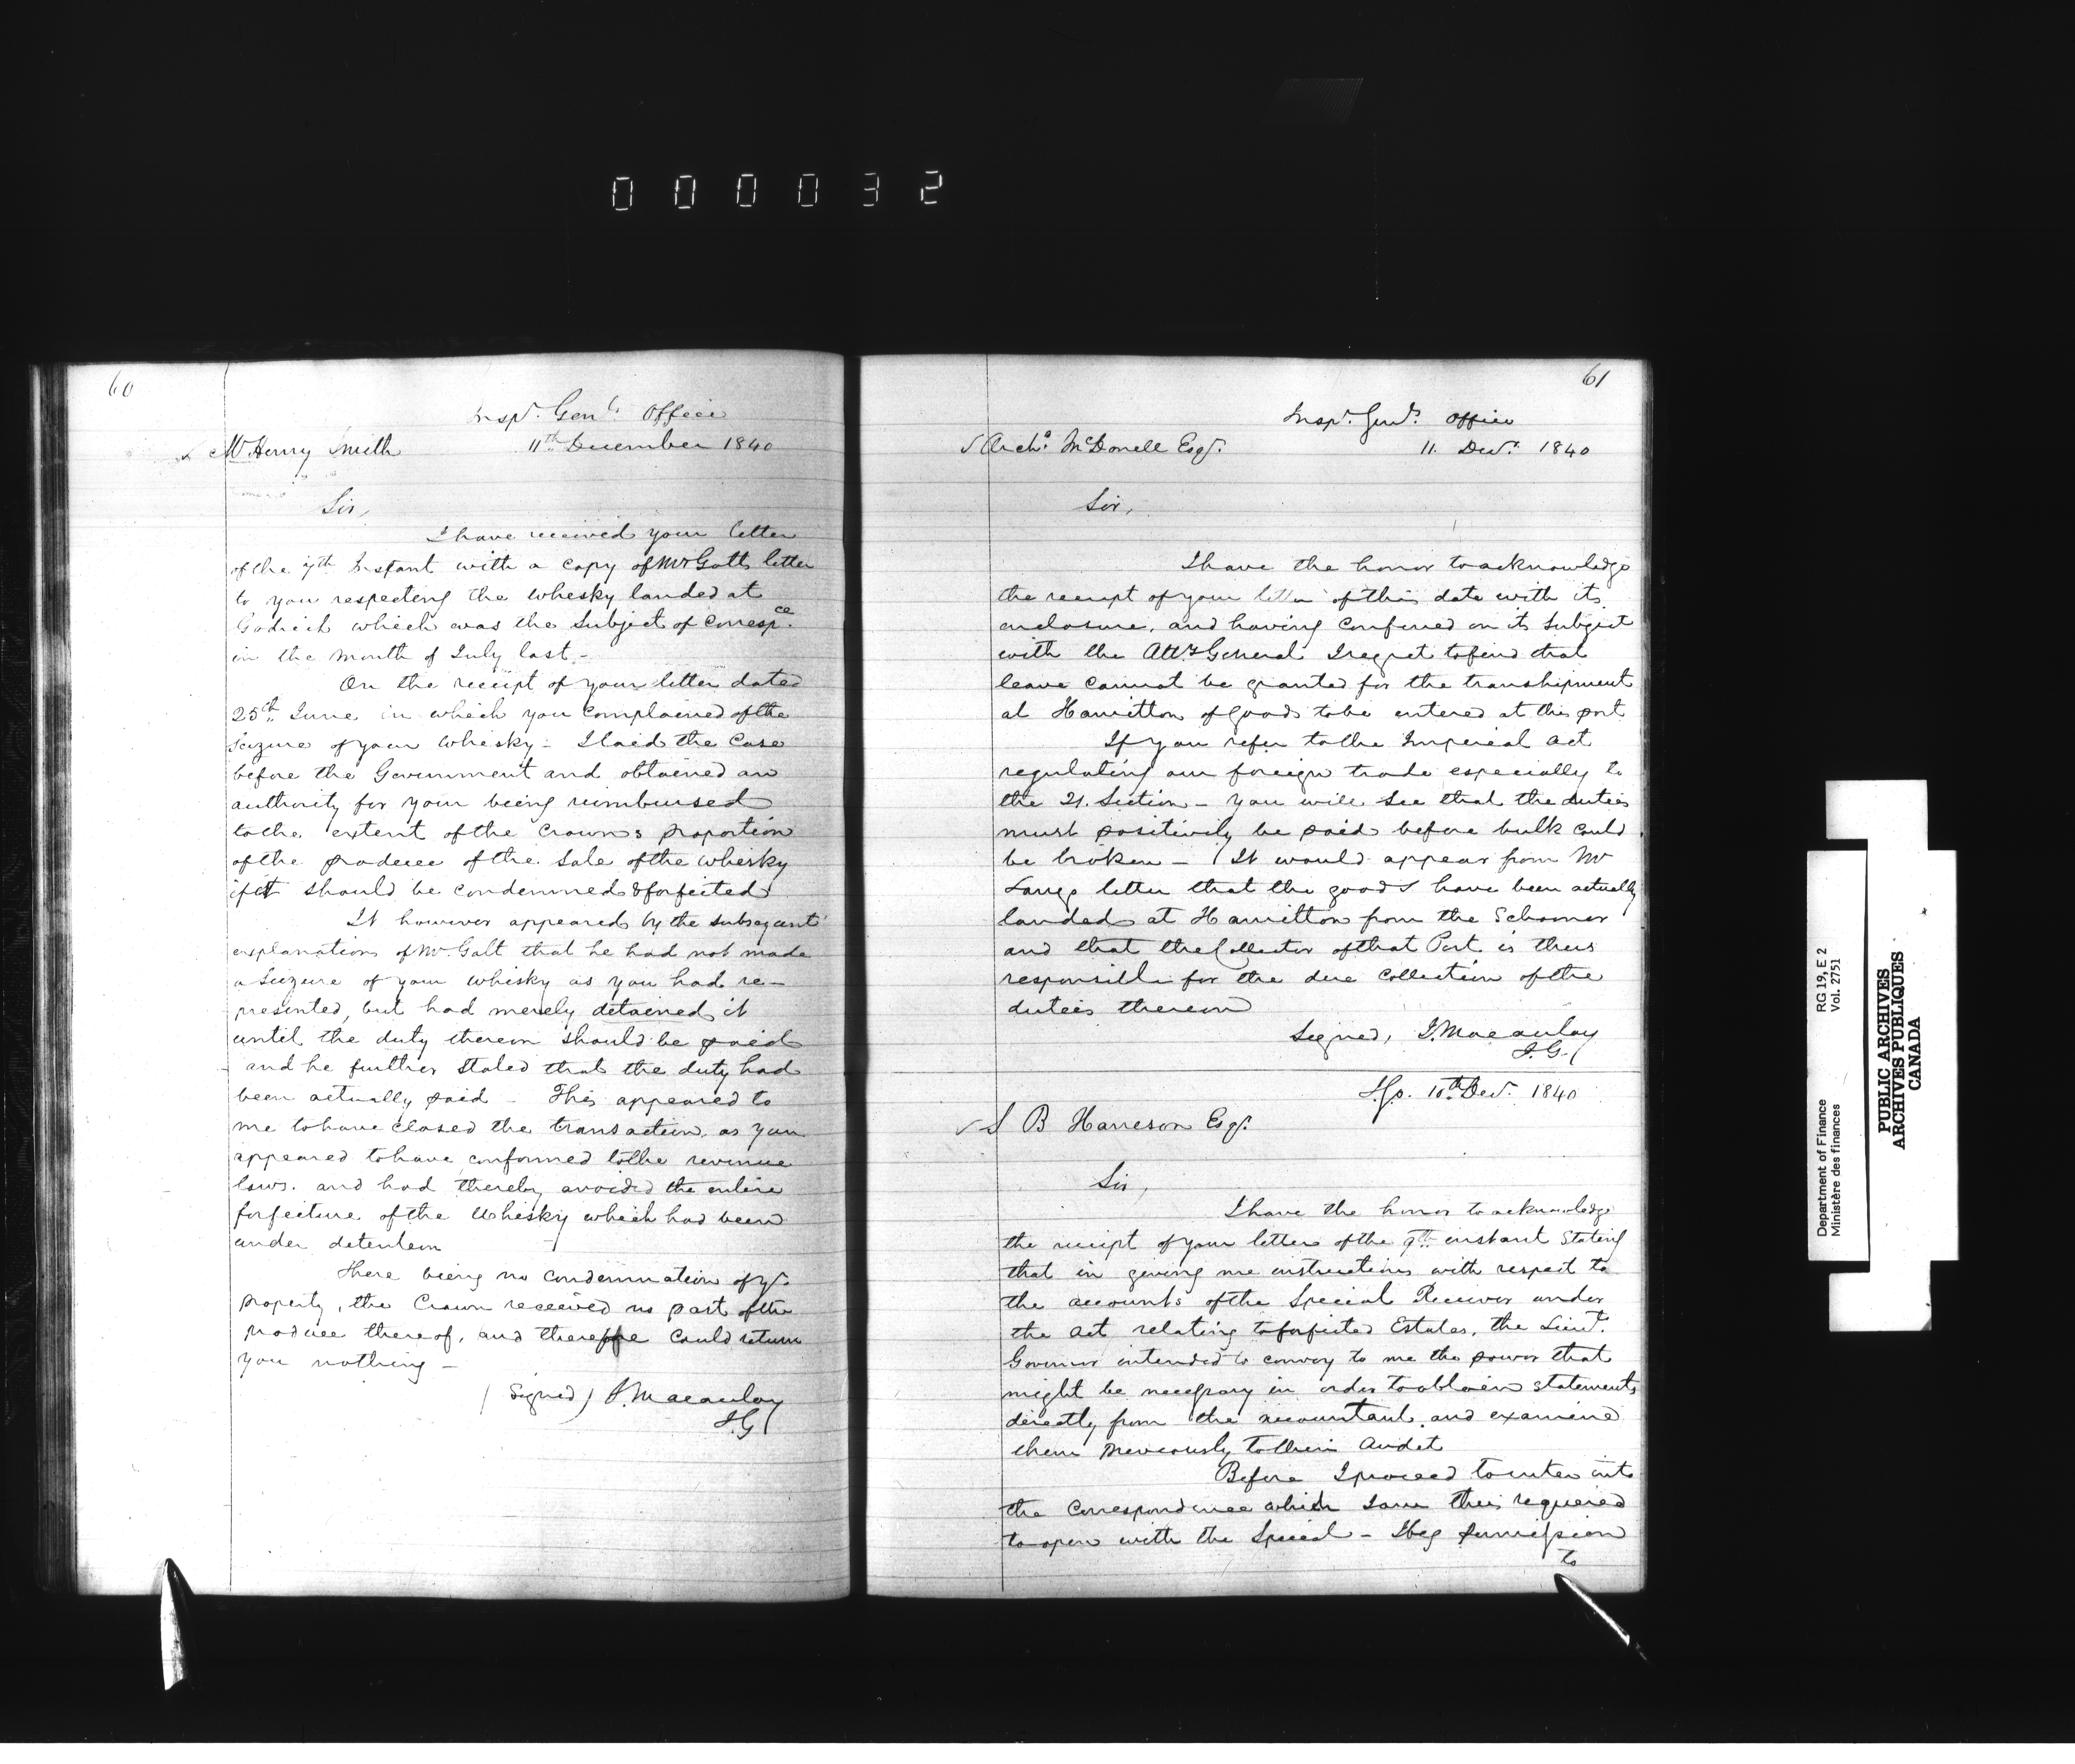 000032
60
Insp.r Gen.ls Office
Mr Henry Smith 11th December 1840
Sir,
I have received your letter
of the 7th Instant with a copy of Mr Galts letter
to you respecting the whisky landed at
Godrich which was the subject of Corresp.ce
in the month of July last –
On the receipt of your letter dated
25th June in which you complained of the
seizure of your whisky – I laid the case
before the Government and obtained an
authority for your being reimbursed
to the extent of the Crowns proportion
of the produce of the sale of the whisky
if it should be condemned & forfeited
It however appeared by the subsequent
explanations of Mr Galt that he had not made
a Seizure of your whisky as you had re–
presented, but had merely detained it
until the duty thereon should be paid
and he further stated that the duty had
been actually paid – This appeared to
me to have closed the transaction, as you
appeared to have conformed to the revenue
laws. and had thereby avoided the entire
forfeiture of the Whisky which had been
under detention
There being no condemnation of yr.
property, the Crown received no part of the
produce thereof, and therefore could return
you nothing –
(Signed) J. Macaulay
I.G.
61
Insp.r Gen.ls Office
Arch.d McDonell Esq.r 11. Decr. 1840
Sir,
I have the honor to acknowledge
the receipt of your letter of this date with its
enclosure, and having conferred on its subject
with the Atty General I regret to find that
leave cannot be granted for the transhipment
at Hamilton of goods to be entered at this port
If you refer to the Imperial Act
regulating our foreign trade especially to
the 21. Section – you will see that the duties
must positively be paid before bulk could
be broken – It would appear from Mr
letter that the goods have been actually
landed at Hamilton from the Schooner
and that the Collector of that Port is thus
responsible for the due collection of the
duties thereon
Signed, J. Macaulay
I.G.
I.G.O. 10th Decr. 1840
S B Harrison Esq.r
Sir,
I have the honor to acknowledge
the receipt of your letter of the 9th instant stating
that in giving me instructions with respect to
the accounts of the Special Receiver under
the Act relating to forfeited Estates, the Lieut.
Governor intended to convey to me the power that
might be necessary in order to obtain statements
directly from the accountant and examine
them previously to their Audit
Before I proceed to enter into
the Correspondence which I am thus required
to open with the Special – I beg permission
to
Department of Finance RG 19, E 2
Ministère des finances Vol. 2751
PUBLIC ARCHIVES
ARCHIVES PUBLIQUES
CANADA